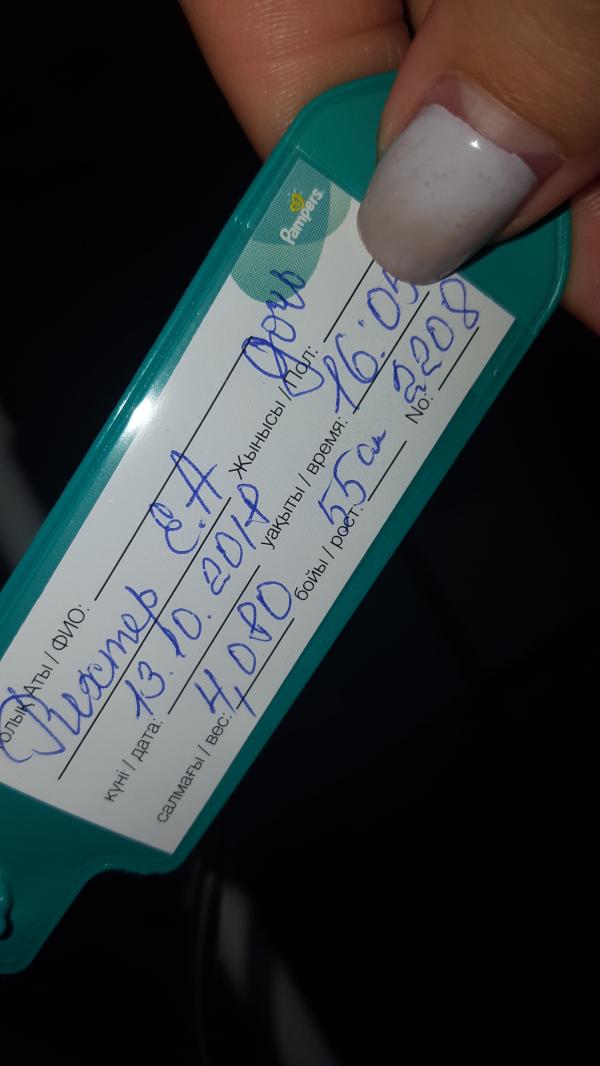 Pampers
олық Аты / ФИО:
Рихтер Е.А Жынысы / Пол: дочь
күні / дата: 13.10.2018 уақыты / время: 16:05
салмағы / вес: 4,080 бойы / рост: 55 см No: 2208